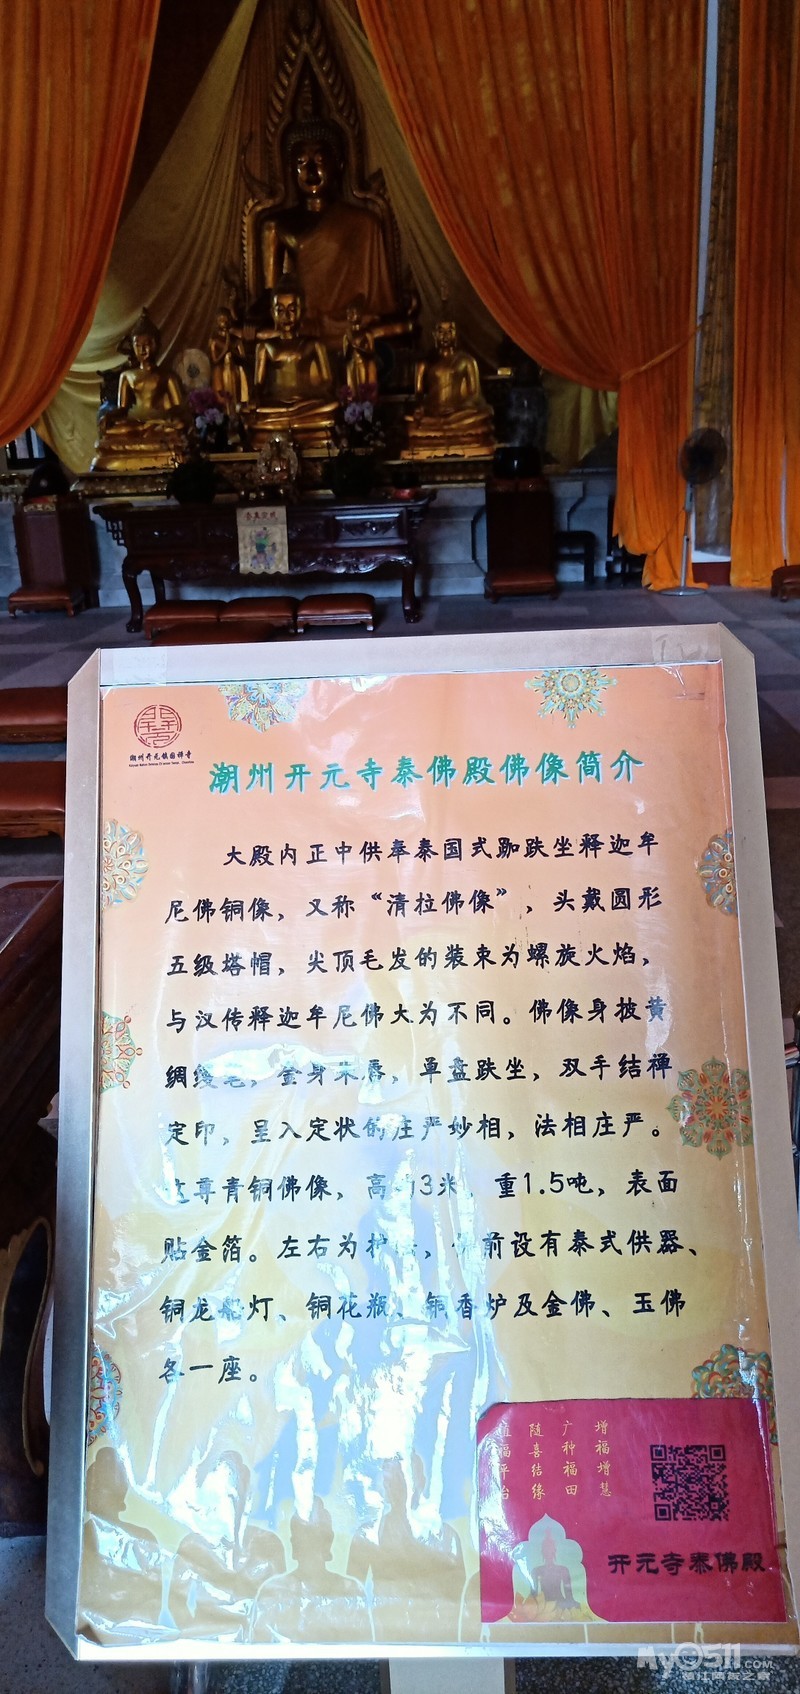 潮州开元镇国禅寺
潮州开元寺泰佛殿佛像简介
大殿内正中供奉泰国式跏趺坐释迦牟
尼佛铜像，又称“清拉佛像”，头戴圆形
五级塔帽，尖顶毛发的装束为螺旋火焰，
与汉传释迦牟尼佛大为不同。佛像身披黄
绸，金身朱唇，单盘趺坐，双手结禅
定印，呈入定状的庄严妙相，法相庄严。
这尊青铜佛像，高约3米，重1.5吨，表面
贴金箔。左右为护，前设有泰式供器、
铜龙船灯、铜花瓶、铜香炉及金佛、玉佛
各一座。
增福增慧
广种福田
随喜结缘
植福平台
开元寺泰佛殿
MyO511.COM